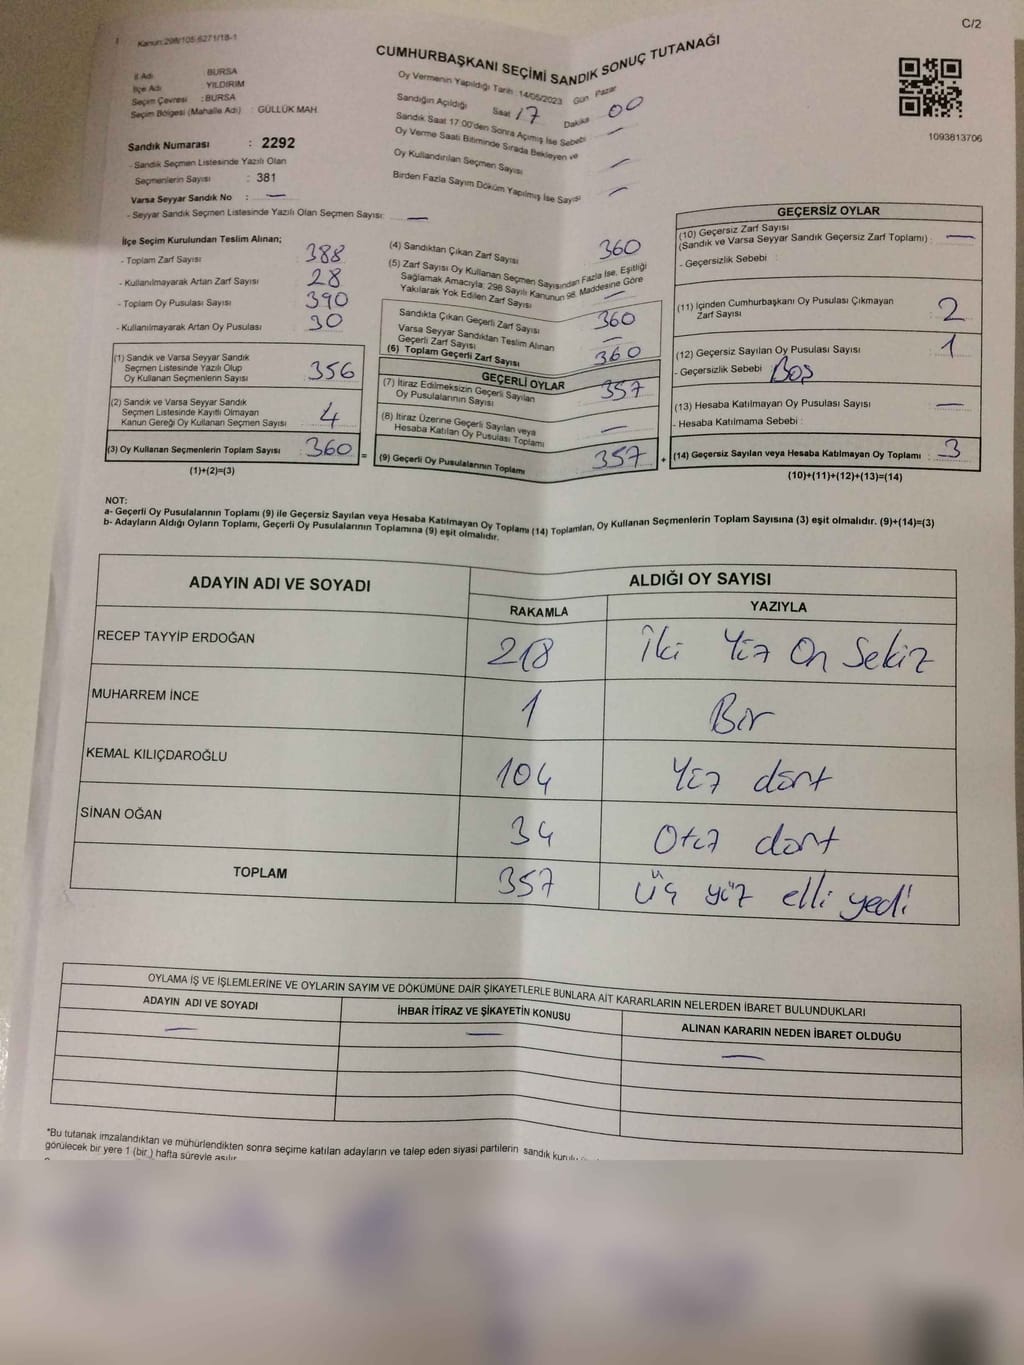 C/2
Kanun:298/105,6271/18-1
CUMHURBAŞKANI SEÇİMİ SANDIK SONUÇ TUTANAĞI
İl Adı : BURSA
İlçe Adı : YILDIRIM
Seçim Çevresi : BURSA
Seçim Bölgesi (Mahalle Adı) : GÜLLÜK MAH.
Sandık Numarası : 2292
- Sandık Seçmen Listesinde Yazılı Olan
Seçmenlerin Sayısı : 381
Varsa Seyyar Sandık No : —
- Seyyar Sandık Seçmen Listesinde Yazılı Olan Seçmen Sayısı: —
Oy Vermenin Yapıldığı Tarih :14/05/2023 Gün Pazar
Sandığın Açıldığı Saat 17 Dakika 00
Sandık Saat 17.00'den Sonra Açımış İse Sebebi —
Oy Verme Saati Bitiminde Sırada Bekleyen ve
Oy Kullandırılan Seçmen Sayısı —
Birden Fazla Sayım Döküm Yapılmış İse Sayısı —
1093813706
İlçe Seçim Kurulundan Teslim Alınan;
- Toplam Zarf Sayısı : 388
- Kullanılmayarak Artan Zarf Sayısı : 28
- Toplam Oy Pusulası Sayısı : 390
- Kullanılmayarak Artan Oy Pusulası : 30
(1) Sandık ve Varsa Seyyar Sandık
Seçmen Listesinde Yazılı Olup
Oy Kullanan Seçmenlerin Sayısı : 356
(2) Sandık ve Varsa Seyyar Sandık
Seçmen Listesinde Kayıtlı Olmayan
Kanun Gereği Oy Kullanan Seçmen Sayısı : 4
(3) Oy Kullanan Seçmenlerin Toplam Sayısı : 360 =
(1)+(2)=(3)
(4) Sandıktan Çıkan Zarf Sayısı 360
(5) Zarf Sayısı Oy Kullanan Seçmen Sayısından Fazla İse, Eşitliği
Sağlamak Amacıyla; 298 Sayılı Kanunun 98. Maddesine Göre
Yakılarak Yok Edilen Zarf Sayısı —
Sandıkta Çıkan Geçerli Zarf Sayısı 360
Varsa Seyyar Sandıktan Teslim Alınan
Geçerli Zarf Sayısı —
(6) Toplam Geçerli Zarf Sayısı 360
GEÇERLİ OYLAR
(7) İtiraz Edilmeksizin Geçerli Sayılan
Oy Pusulalarının Sayısı 357
(8) İtiraz Üzerine Geçerli Sayılan veya
Hesaba Katılan Oy Pusulası Toplamı —
(9) Geçerli Oy Pusulalarının Toplamı 357 +
GEÇERSİZ OYLAR
(10) Geçersiz Zarf Sayısı
(Sandık ve Varsa Seyyar Sandık Geçersiz Zarf Toplamı) : —
- Geçersizlik Sebebi :
(11) İçinden Cumhurbaşkanı Oy Pusulası Çıkmayan
Zarf Sayısı : 2
(12) Geçersiz Sayılan Oy Pusulası Sayısı : 1
- Geçersizlik Sebebi : Boş
(13) Hesaba Katılmayan Oy Pusulası Sayısı : —
- Hesaba Katılmama Sebebi :
(14) Geçersiz Sayılan veya Hesaba Katılmayan Oy Toplamı : 3
(10)+(11)+(12)+(13)=(14)
NOT:
a- Geçerli Oy Pusulalarının Toplamı (9) ile Geçersiz Sayılan veya Hesaba Katılmayan Oy Toplamı (14) Toplamları, Oy Kullanan Seçmenlerin Toplam Sayısına (3) eşit olmalıdır. (9)+(14)=(3)
b- Adayların Aldığı Oyların Toplamı, Geçerli Oy Pusulalarının Toplamına (9) eşit olmalıdır.
ADAYIN ADI VE SOYADI ALDIĞI OY SAYISI
RAKAMLA YAZIYLA
RECEP TAYYİP ERDOĞAN 218 İki Yüz On Sekiz
MUHARREM İNCE 1 Bir
KEMAL KILIÇDAROĞLU 104 Yüz dört
SİNAN OĞAN 34 Otuz dört
TOPLAM 357 Üç yüz elli yedi
OYLAMA İŞ VE İŞLEMLERİNE VE OYLARIN SAYIM VE DÖKÜMÜNE DAİR ŞİKAYETLERLE BUNLARA AİT KARARLARIN NELERDEN İBARET BULUNDUKLARI
ADAYIN ADI VE SOYADI İHBAR İTİRAZ VE ŞİKAYETİN KONUSU ALINAN KARARIN NEDEN İBARET OLDUĞU
— — —
*Bu tutanak imzalandıktan ve mühürlendikten sonra seçime katılan adayların ve talep eden siyasi partilerin sandık
görülecek bir yere 1 (bir ) hafta süreyle asılır.